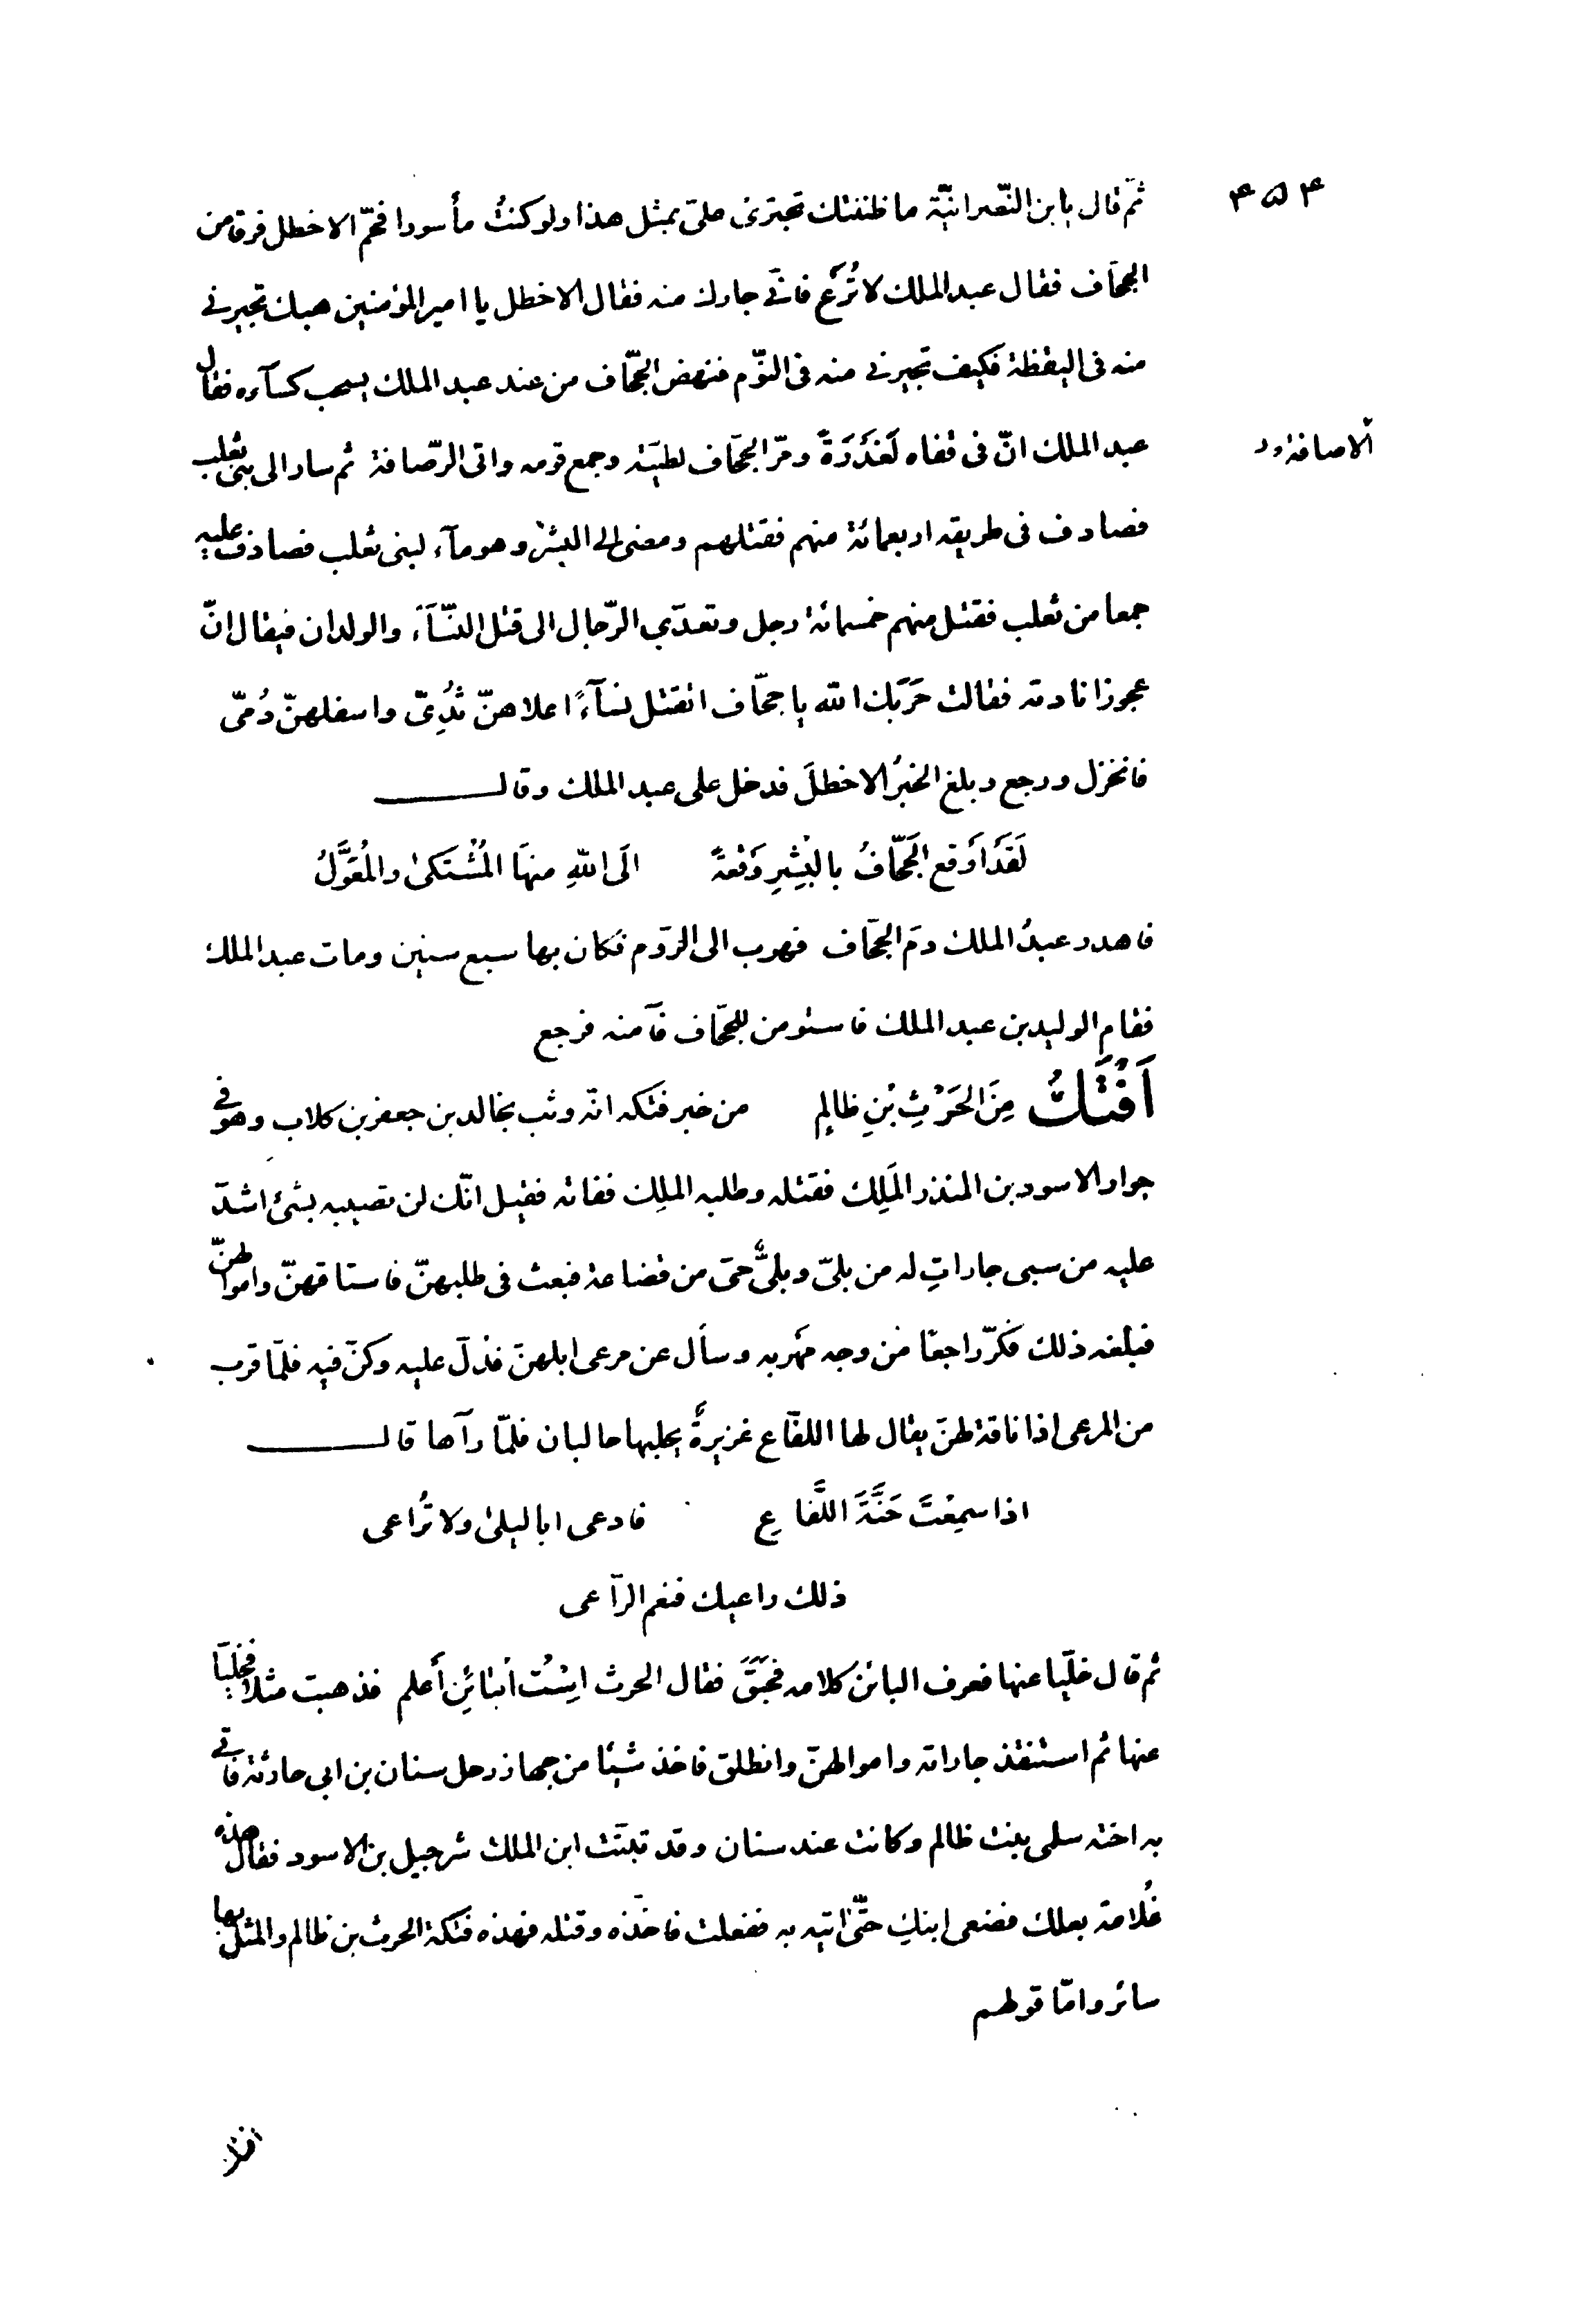 ۴۵۴
ثمّ قال يا بن النّصرانيّة ما ظننتك تجترئ علىّ بمثل هذا ولو كنتُ مأسورا فحمّ الاخطل فرقا من
الجحّاف فقال عبد الملك لا تُرَع فانّى جارك منه فقال الاخطل يا امير المؤمنين هبك تجيرنى
منه فى اليقظة فكيف تجيرنى منه فى النّوم فنهض الجحّاف من عند عبد الملك يسحب كسآءه فقال
عبد الملك انّ فى قفاه لَغَدْرَةً ومرّ الجحّاف لطيّته وجمع قومه واتى الرّصافة ثم سار الى بنى تغلب
فصادف فى طريقه اربعمائة منهم فقتلهم ومضى الى البِشْر وهو مآء لبنى تغلب فصادف عليه
جمعا من تغلب فقتل منهم خمسمائة رجل وتعدّى الرّجال الى قتل النّسآء والولدان فيقال انّ
عجوزا نادته فقالت حَرَبَك الله يا جحّاف اتقتل نسآءً اعلاهنّ ثُدِىّ واسفلهنّ دُمىّ
فانخزل ورجع وبلغ الخبرُ الاخطلَ فدخل على عبد الملك وقال
لَقَدْ أَوقع الجَحّافُ بالبِشْرِ وَقْعةً الَى اللهِ منهَا المُشْتَكىٰ والمُعَوَّلُ
فاهدر عبدُ الملك دمَ الجحّاف فهرب الى الرّوم فكان بها سبع سنين ومات عبد الملك
فقام الوليد بن عبد الملك فاستؤمن للجحّاف فآمنه فرجع
اَفْتَكُ مِنَ الحَرْثِ بْنِ ظالِمٍ من خبر فتكه انّه وثب بخالد بن جعفر بن كلاب وهو فى
جوار الاسود بن المنذر المَلِك فقتله وطلبه الملِك ففاته فقيل انّك لن تصيبه بشئ اشدّ
عليه من سبى جاراتٍ له من بلىّ وبلىٌّ حىّ من قضاعة فبعث فى طلبهنّ فاستاقهنّ واموالهنّ
فبلغه ذلك فكرّ راجعًا من وجه مَهربه وسأل عن مرعى ابلهنّ فدُلّ عليه وكنّ فيه فلمّا قرب
من المرعى اذا ناقة لهنّ يقال لها اللفّاع غزيرةٌ يحلبها حالبان فلمّا رآها قال
اذا سمِعْتَ حَنَّةَ اللَّفاعِ فادعى ابا ليلىٰ ولا تُراعى
ذلك راعيك فنعم الرّاعى
ثم قال خلّيا عنها فعرف البائن كلامه فحَبَقَ فقال الحرث اِسْتُ البائِنِ أعلم فذهبت مثلا فخلّيا
عنها ثم استنقذ جاراته واموالهنّ وانطلق فاخذ شيئا من جهاز رحل سنان بن ابى حارثة فاتى
به اخته سلمى بنت ظالم وكانت عند سنان وقد تبنّت ابن الملك شرحبيل بن الاسود فقال هذه
عُلامة بعلك فضعى ابنك حتّى اتيه به ففعلت فاخذه وقتله فهذه فتكة الحرث بن ظالم والمثل بها
سائر وامّا قولهم